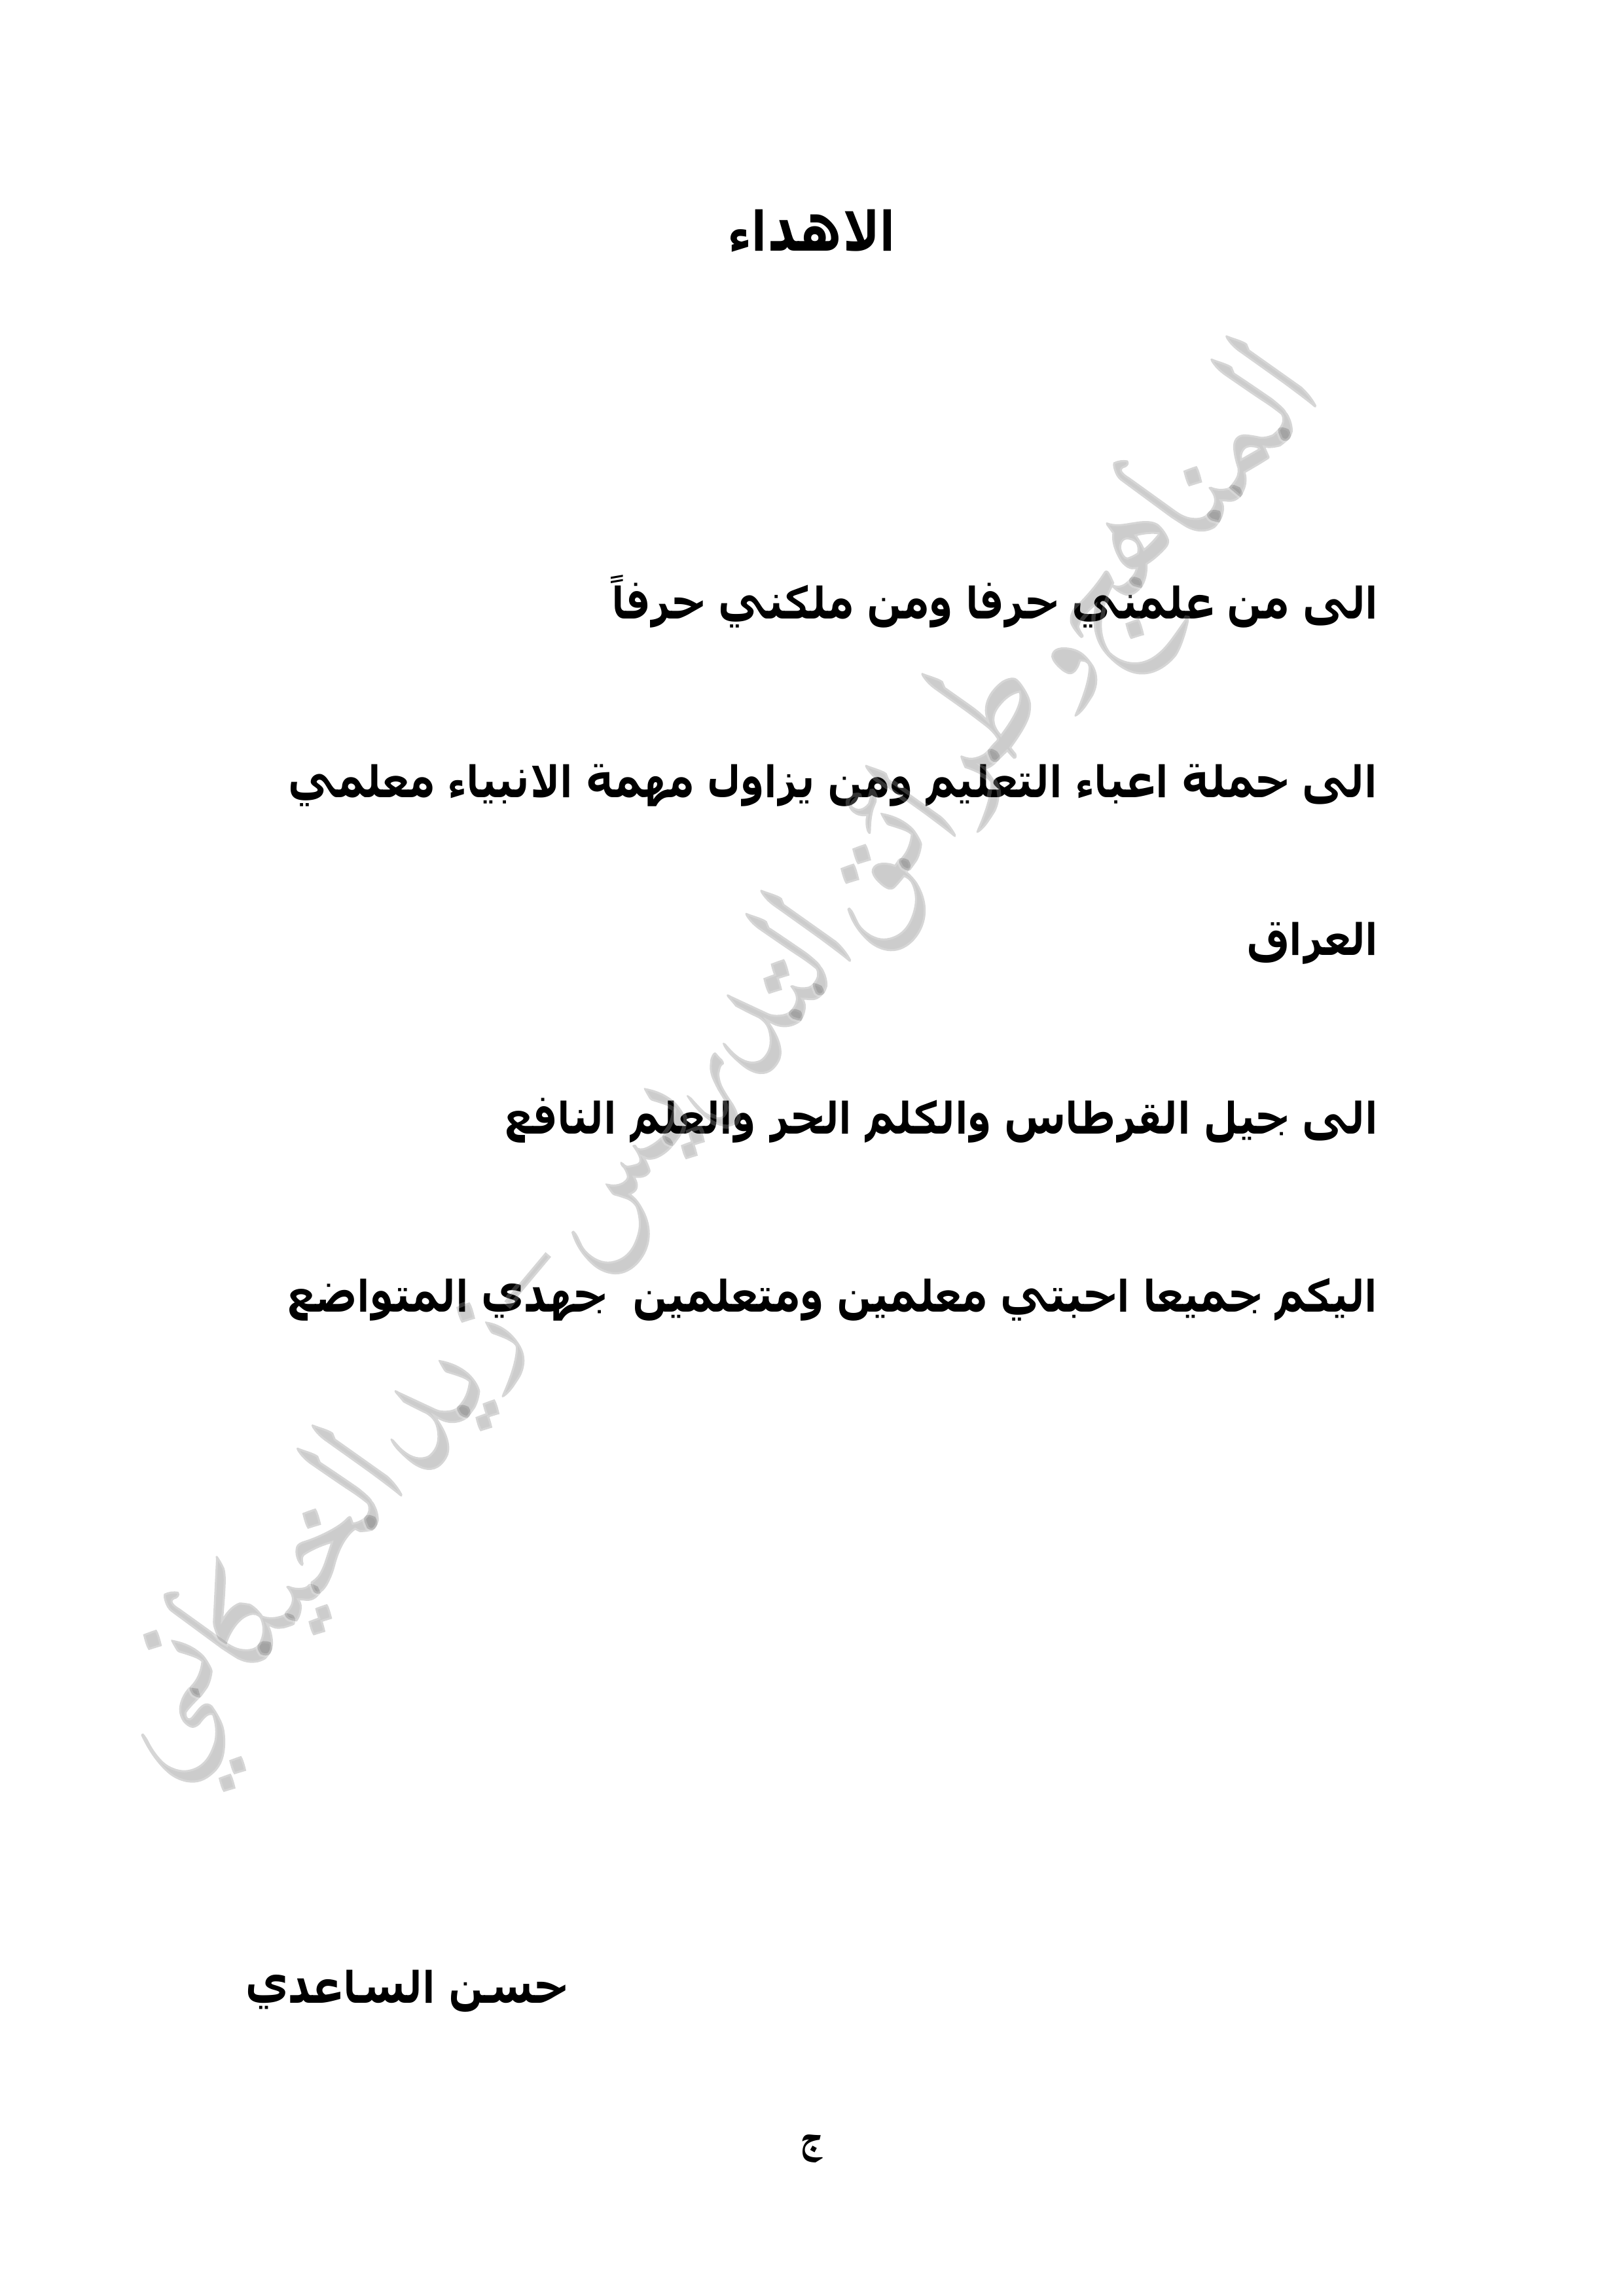 الاهداء
الى من علمني حرفا ومن ملكني حرفاً
الى حملة اعباء التعليم ومن يزاول مهمة الانبياء معلمي
العراق
الى جيل القرطاس والكلم الحر والعلم النافع
اليكم جميعا احبتي معلمين ومتعلمين جهدي المتواضع
المناهج و طرائق التدريس – زيد الخيكاني
حسن الساعدي
ج